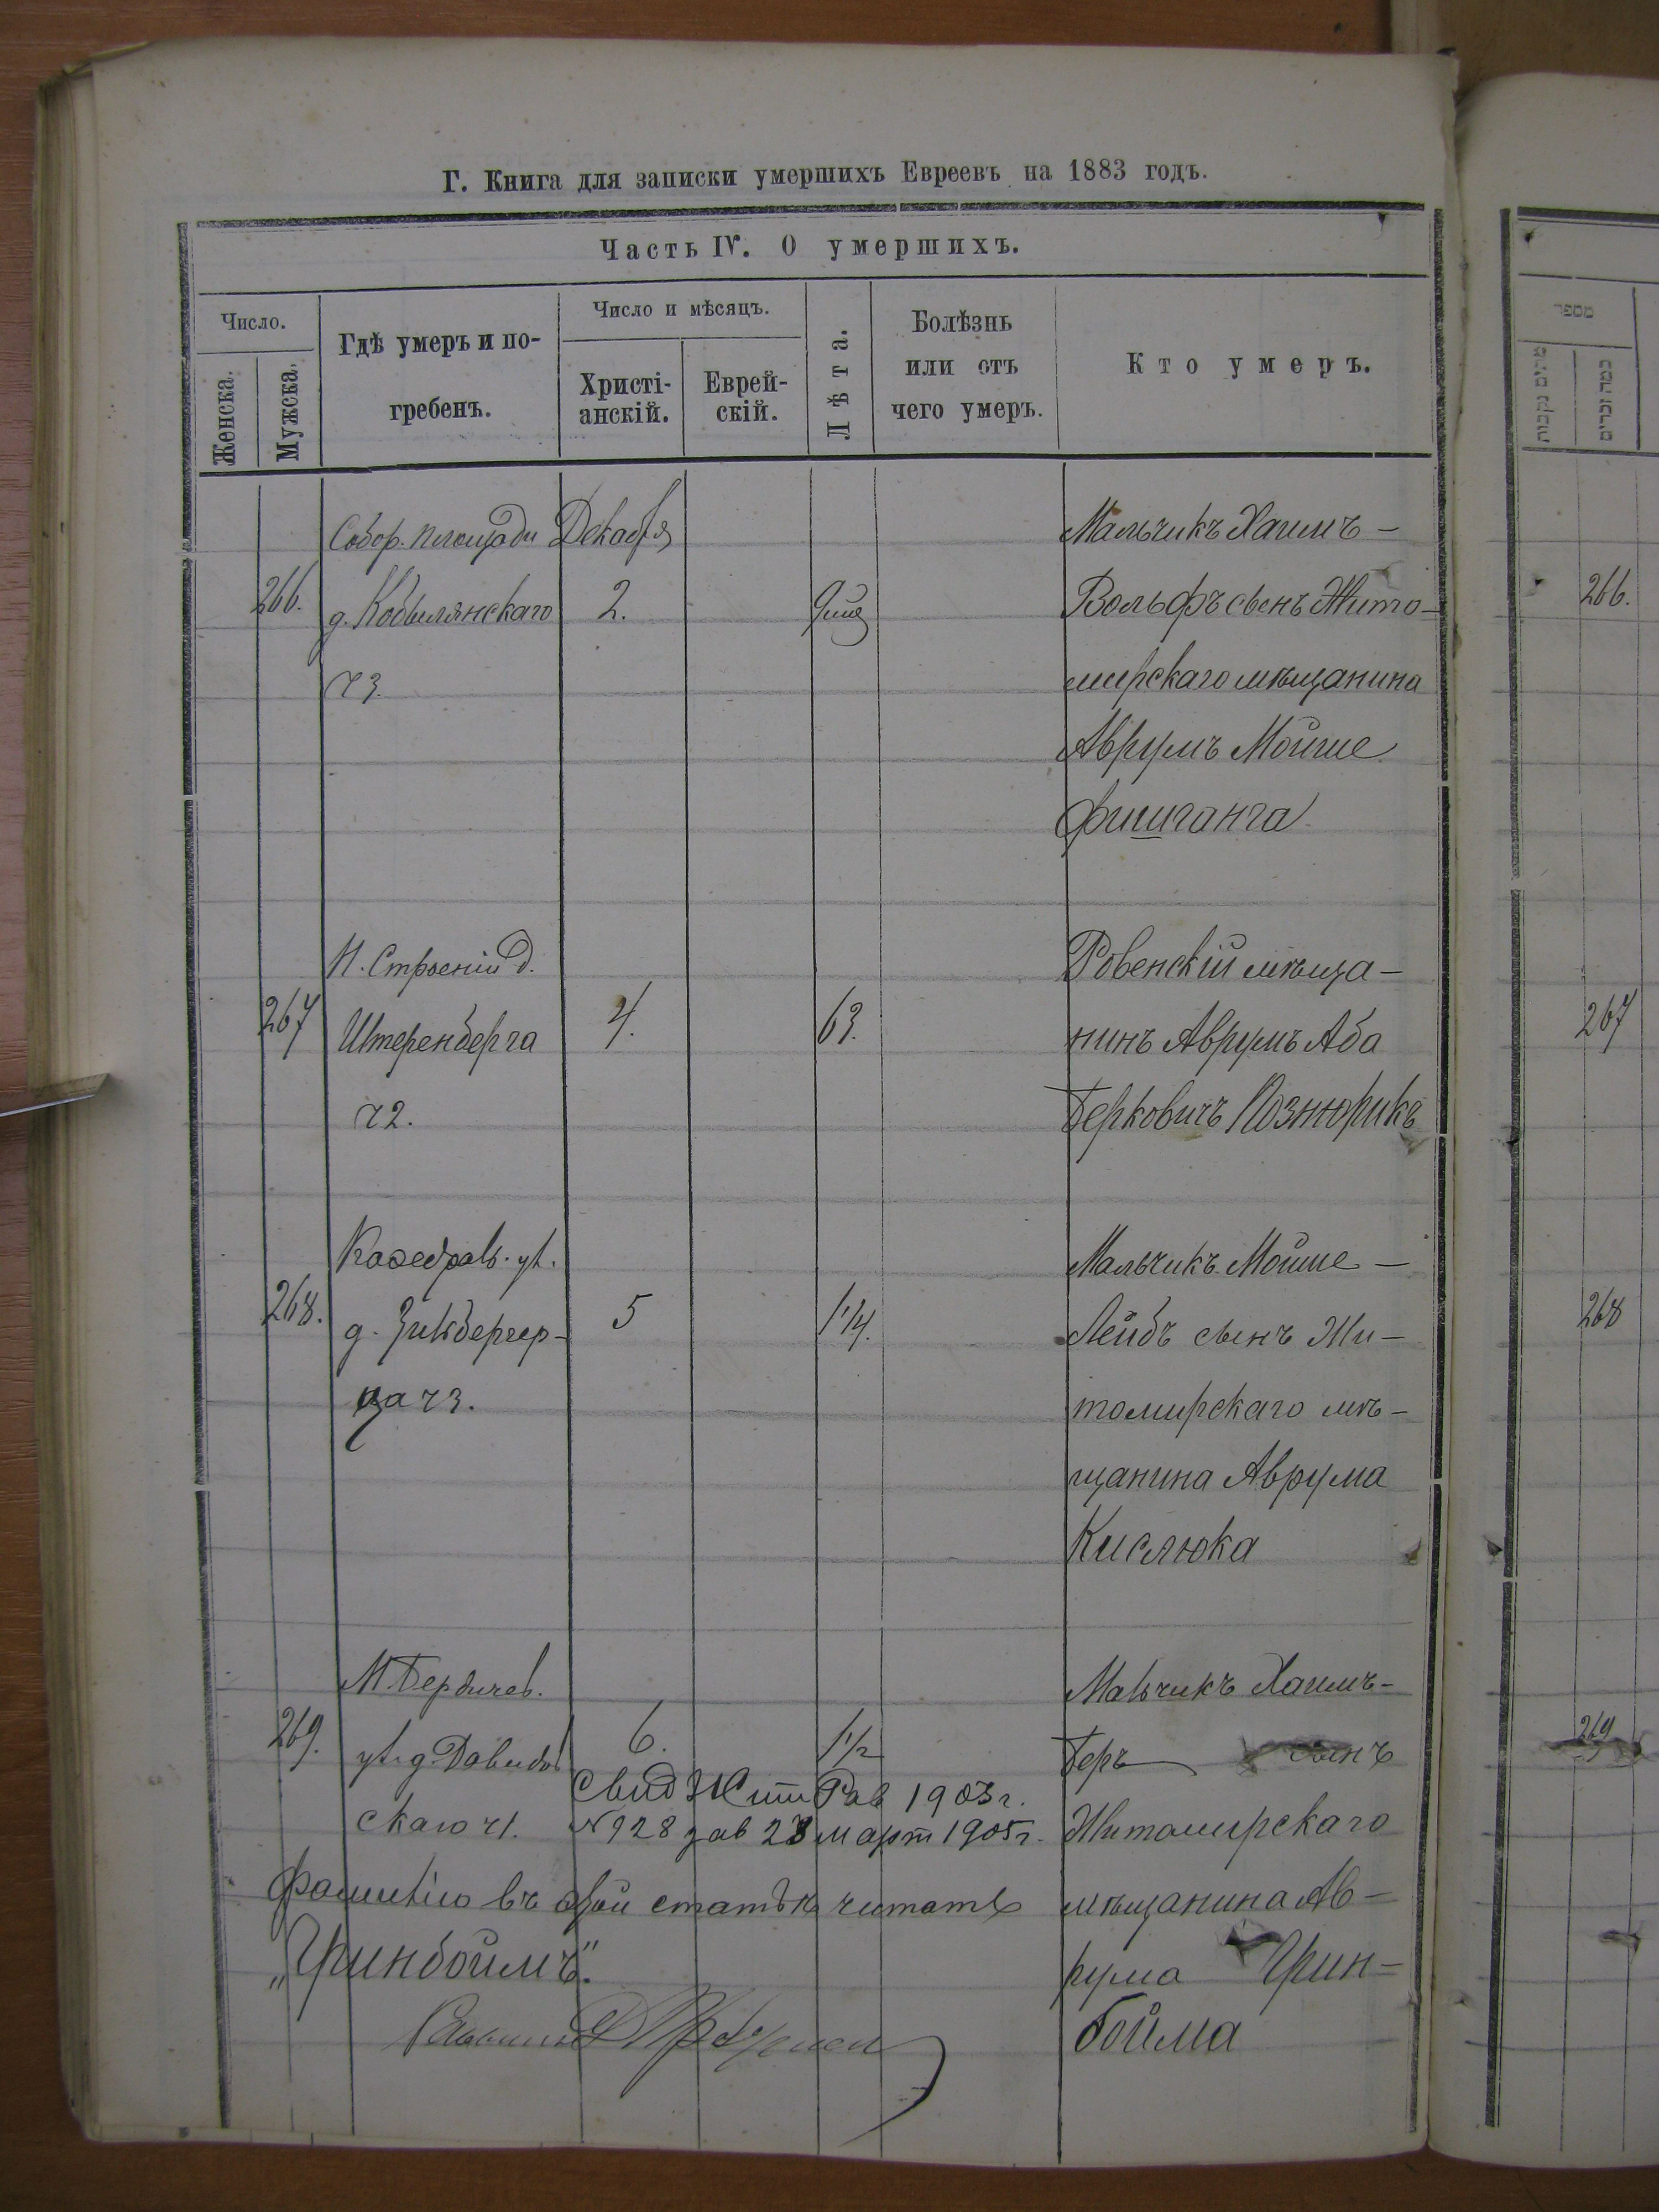 Г. Книга для записки умершихъ Евреевъ на 1883 годъ.
Часть IV. О умершихъ.
Число.
Женска.
Мужска.
Гдѣ умеръ и по-
гребенъ.
Число и мѣсяцъ.
Христі-
анскій.
Еврей-
скій.
Лѣта.
Болѣзнь
или отъ
чего умеръ.
Кто умеръ.
Собор. площади
266.
д. Кобылянскаго
ч3.
Декабря
2.
Мальчикъ Хаимъ –
Вольфъ сынъ Жито–
мирскаго мѣщанина
Аврумъ Мойше
Фишганга
Н. Строеній д.
267
Штеренберга
ч2.
4.
63.
Ровенскій мѣща–
нинъ Аврумъ Аба
Берковичъ Познюрикъ
Каѳедраль. ул.
268.
д. Зикбергер–
ца ч3.
5
1 1/4.
Мальчикъ Мойше –
Лейбъ сынъ Жи–
томирскаго мѣ–
щанина Аврума
Кислюка
М Бердичев.
269.
ул. д. Давидов
скаго ч1.
6.
1 1/2
Мальчикъ Хаимъ–
Беръ сынъ
Житомирскаго
мѣщанина Ав–
рума Грин–
бойма
Свид Жит Рав 1903 г.
№928 март 1905 г.
Фамилію въ сей статьѣ читать
„Гринбоймъ“.
Раввинъ
מספר
266.
267
268
269